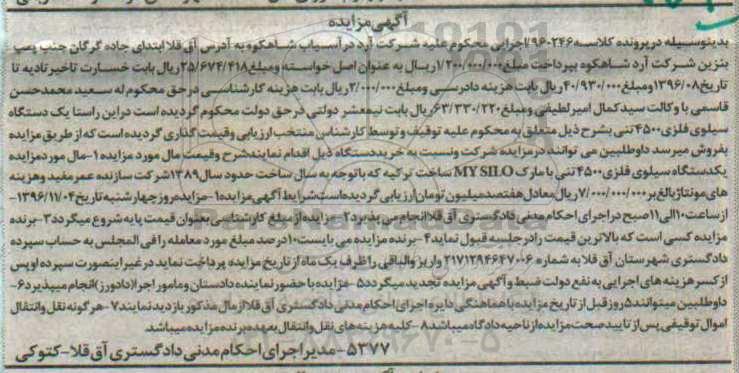 آگهی مزایده
بدینوسیله در پرونده کلاسه ۹۶۰۲۴۶ اجرایی محکوم علیه شرکت آرد در آسیاب شاهکوه به آدرس آق قلا ابتدای جاده گرگان جنب پمپ
بنزین شرکت آرد شاهکوه بپرداخت مبلغ ۱/۲۰۰/۰۰۰/۰۰۰ ریال به عنوان اصل خواسته و مبلغ ۲۵/۶۷۴/۴۱۸ ریال بابت خسارت تاخیر تادیه تا
تاریخ ۱۳۹۶/۰۸ و مبلغ ۴۰/۹۳۰/۰۰۰ ریال بابت هزینه دادرسی و مبلغ ۲/۰۰۰/۰۰۰ ریال بابت هزینه کارشناسی در حق محکوم له سعید محمدحسن
قاسمی با وکالت سید کمال امیر لطیفی و مبلغ ۶۳/۳۳۰/۲۲۰ ریال بابت نیم عشر دولتی در حق دولت محکوم گردیده است در این راستا یک دستگاه
سیلوی فلزی ۴۵۰۰ تنی بشرح ذیل متعلق به محکوم علیه توقیف و توسط کارشناس منتخب ارزیابی وقیمت گذاری گردیده است که از طریق مزایده
بفروش میرسد داوطلبین می توانند در مزایده شرکت ونسبت به خرید دستگاه ذیل اقدام نمایند شرح وقیمت مال مورد مزایده ۱-مال مورد مزایده
یکدستگاه سیلوی فلزی ۴۵۰۰ تنی با مارک MY SILO ساخت ترکیه که باتوجه به سال ساخت حدود سال ۱۳۸۹ شرکت سازنده عمر مفید وهزینه
های مونتاژ بالغ بر ۷/۰۰۰/۰۰۰/۰۰۰ ریال معادل هفتصد میلیون تومان ارزیابی گردیده است شرایط آگهی مزایده ۱-مزایده روز چهارشنبه تاریخ ۱۳۹۶/۱۱/۰۴-
از ساعت ۱۰ الی ۱۱ صبح در اجرای احکام مدنی دادگستری آق قلا انجام می پذیرد ۲-مزایده از مبلغ کارشناسی بعنوان قیمت پایه شروع میگردد ۳-برنده
مزایده کسی است که بالاترین قیمت را در جلسه قبول نماید ۴-برنده مزایده می بایست ۱۰ درصد مبلغ مورد معامله را فی المجلس به حساب سپرده
دادگستری شهرستان آق قلا به شماره ۲۱۷۱۲۹۴۶۴۷۰۰۶ واریز والباقی را ظرف یک ماه از تاریخ مزایده پرداخت نماید در غیر اینصورت سپرده او پس
از کسر هزینه های اجرایی به نفع دولت ضبط و آگهی مزایده تجدید میگردد ۵-مزایده با حضور نماینده دادستان و مامور اجرا (دادورز) انجام میپذیرد ۶-
داوطلبین میتوانند ۵ روز قبل از تاریخ مزایده با هماهنگی دایره اجرای احکام مدنی دادگستری آق قلا از مال مذکور بازدید نمایند ۷-هر گونه نقل وانتقال
اموال توقیفی پس از تایید صحت مزایده از ناحیه دادگاه میباشد ۸-کلیه هزینه های نقل وانتقال بعهده برنده مزایده میباشد.
۵۳۷۷-مدیر اجرای احکام مدنی دادگستری آق قلا-کتوکی